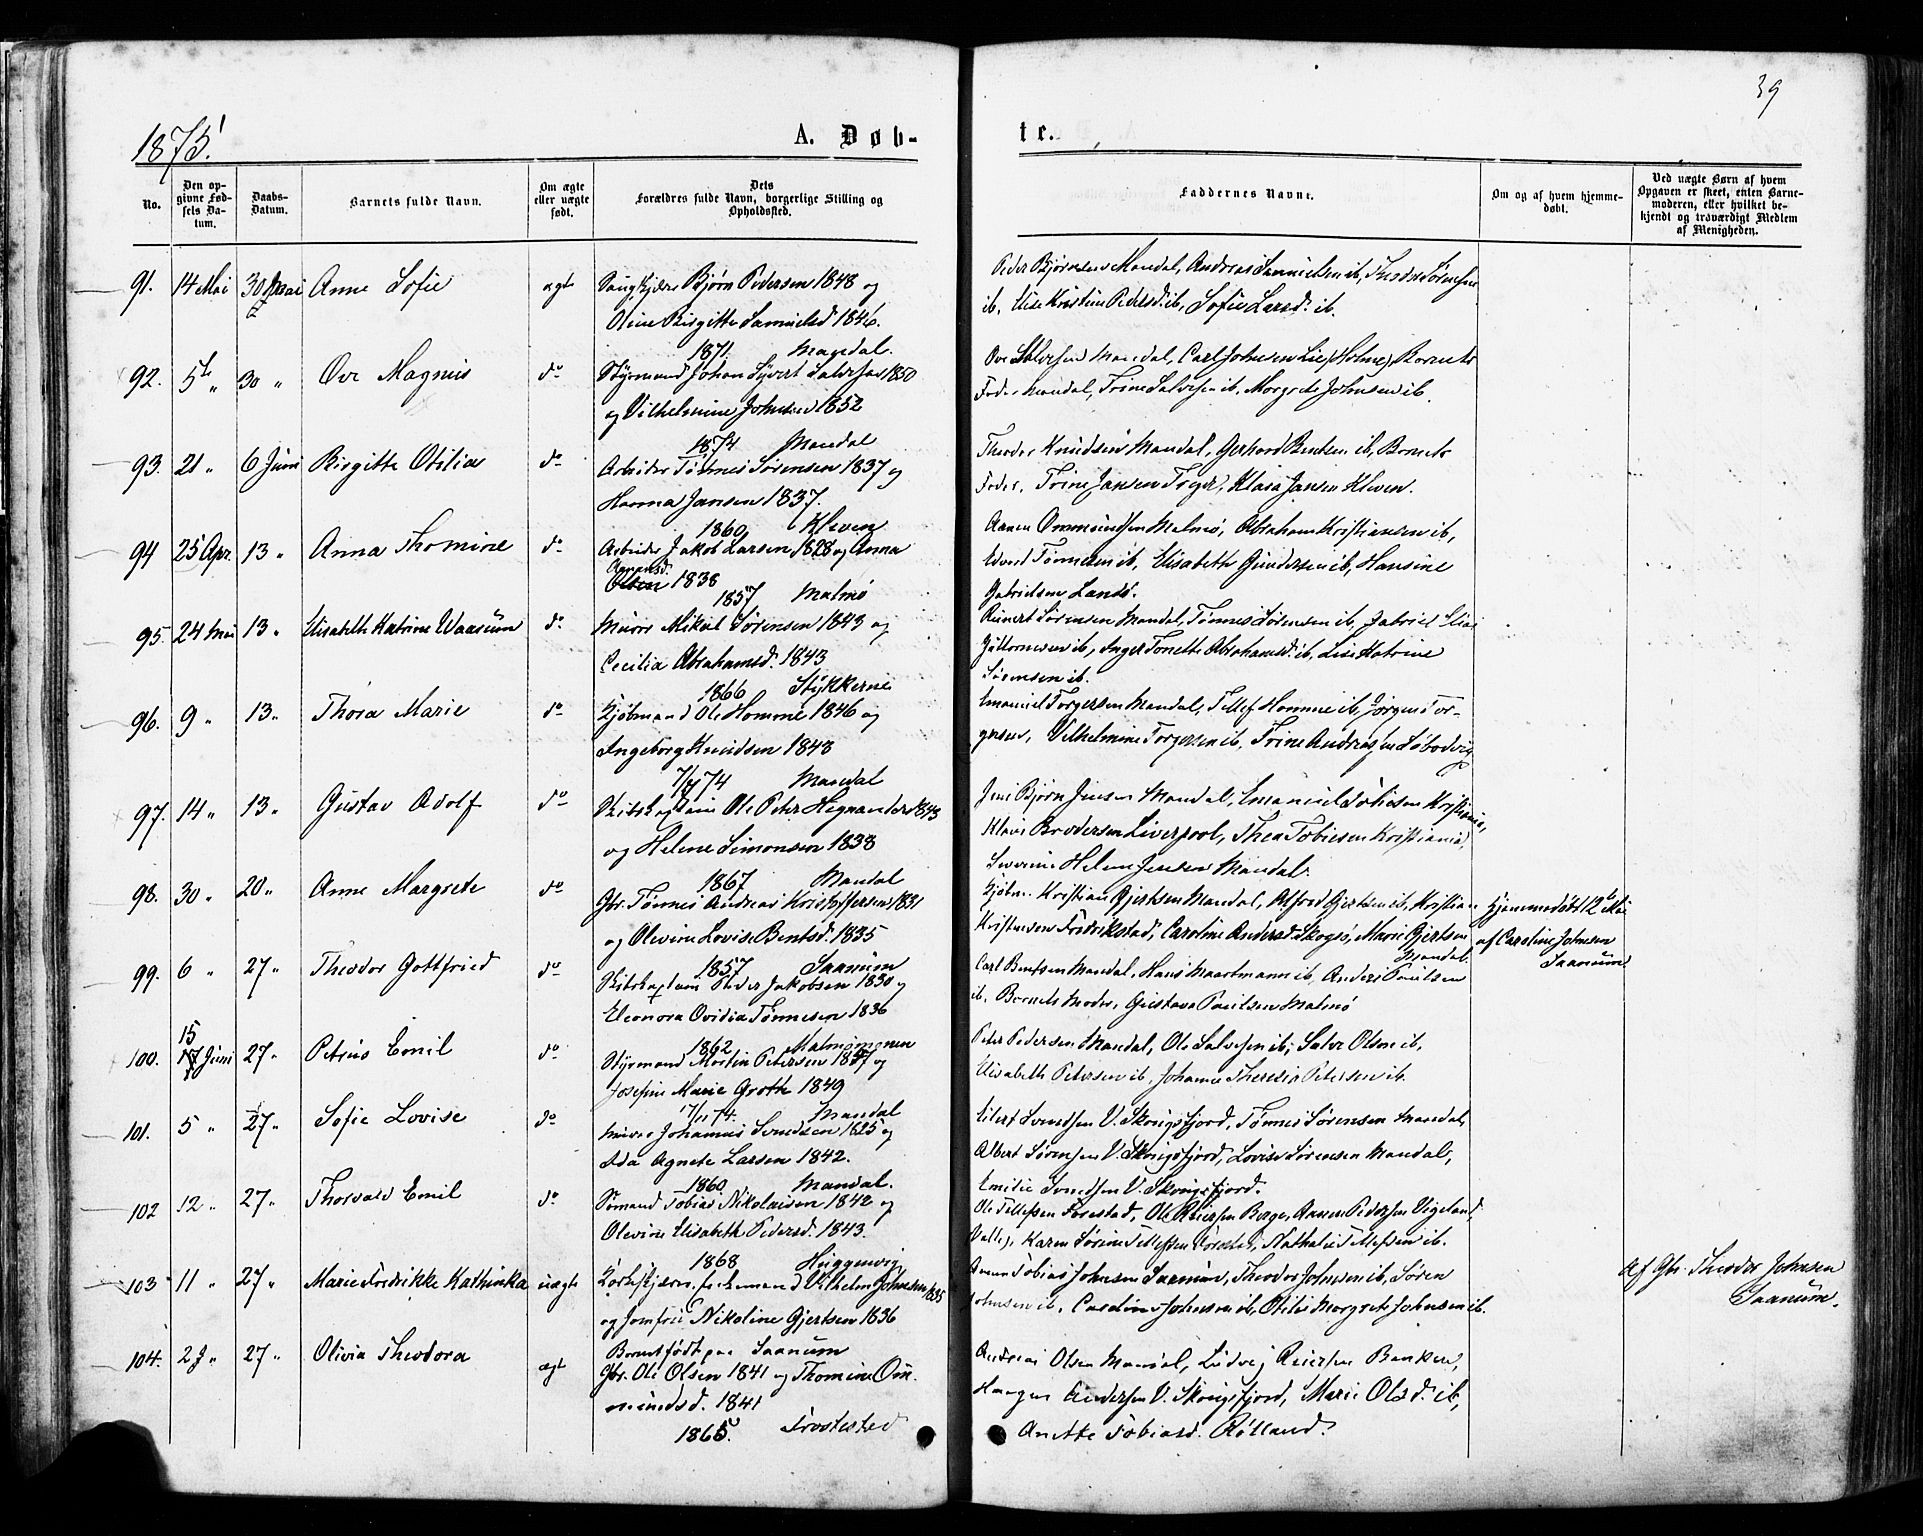 39
1875.
A. Døb-
te.
No.
Den op-
givne Fød-
sels Da-
tum.
Daabs-
Datum.
Barnets fulde Navn.
Om ægte
eller uægte
født.
Dets
Forældres fulde Navn, borgerlige Stilling og
Opholdssted.
Faddernes Navne.
Om og af hvem hjemme-
døbt.
Ved uægte Børn af hvem
Opgaven er skeet, enten Barne-
moderen, eller hvilket be-
kjendt og troværdigt Medlem
af Menigheden.
91. 14 Mai 30 Mai Anne Sofie ægte
Bjørn Pedersen 1848 og
Oline Birgitte Samuelsd 1846.
1871. Mandal.
Peder Bjørnsen Mandal, Andreas Samuelsen ib, Theodor Sørensen
ib, Elise Kristine Pedersd. ib, Sofie Larsd. ib.
92. 5te " 30 " Ove Magnus do
Styrmand Johan Sivert Salvesen 1850
og Vilhelmine Johnsen 1852
1874 Mandal
Ove Salvesen Mandal, Carl Johnsen Lie, Holme, Barnets
Fader Mandal, Trine Salvesen ib, Margrete Johnsen ib.
93. 21 " 6 Juni Birgitte Otilia do
Arbeider Tønnes Sørensen 1837 og
Hanna Jansen 1837.
1860, Kleven
Theodor Knudsen Mandal, Gerhard Bentsen ib, Barnets
Fader, Trine Jansen Kleven.
94 25 Apr. 13 " Anna Thomine do
Arbeider Jakob Larsen 1828 og Anna
Aanensd.
Olsen 1838
1857 Malmø
Aanen Ommundsen Malmø, Abraham Kristiansen ib,
Edvard Tønnesen ib, Elisabeth Gundersen ib, Hansine
Gabrielsen Landø.
95. 24 Mai 13 " Elisabeth Katrine Waarum do
Murer Mikal Sørensen 1843 og
Cecilia Abrahamsd. 1843
1866 Stykkerne
Reinert Sørensen Mandal, Tønnes Sørensen ib, Gabriel Elias
Guttormsen ib, Inger Tonette Abrahamsd. ib, Lise Katrine
Sørensen ib.
96. 9 " 13 " Thora Marie do
Kjøbmand Ole Homme 1846 og
Ingeborg Knudsen 1848
7/ 74 Mandal
Emanuel Torgersen Mandal, Tellef Homme ib, Jørgen Tor-
gersen, Vilhelmine Torgersen ib, Trine Andreasen
97. 14 " 13 " Gustav Adolf do
Skibskaptain Ole Peter Hegnander 1843
og Helene Simonsen 1838
1867 Mandal
Jens Bjørn Jensen Mandal, Emanuel Tobiesen Kristiania,
Klaus Brodersen Liverpool, Thea Tobiesen Kristiania,
Severine Helene Jensen Mandal.
98. 30 " 20 " Anne Margrete do
Gbr. Tønnes Andreas Kristoffersen 1831
og Olevine Lovise Bentsd. 1835
1857 Saanum
Kjøbm. Kristian Gjertsen Mandal, Alfred Gjertsen ib, Kristian
Kristensen Fredrikstad, Caroline Andersd. Skogsø, Marie Gjertsen
Mandal.
Hjemmedøbt 12te Mai
af Caroline Johnsen
Saanum
99. 6 " 27 " Theodor Gottfried do
Skibskaptain Peder Jakobsen 1830 og
Eleonora Ovidia Tønnesen 1836
1862 Malmømonen
Carl Bentsen Mandal, Hans Maartmann ib, Anders Paulsen
ib. Barnets Moder, Gustava Paulsen Malmø
100. 15 17 Juni 27 " Petrus Emil do
Styrmand Martin Petersen 1847 og
Josefine Marie Groth 1849
17/11 74. Mandal
Peter Pedersen Mandal, Ole Salvesen ib, Salve Olsen ib,
Elisabeth Petersen ib, Johanne Theresia Petersen ib.
101. 5 " 27 " Sofie Lovise do
Murer Johannes Svendsen 1825 og
Ida Agnete Larsen 1842.
1860 Mandal.
Eilert Svendsen V. Skougsfjord, Tønnes Sørensen Mandal,
Albert Sørensen V. Skougsfjord, Lovise Sørensen Mandal,
Emilie Svendsen V. Skougsfjord.
102 12 " 27 " Thorvald Emil do
Sømand Tobias Nikolaisen 1842 og
Olevine Elisabeth Pedersd. 1843.
1868
Ole Tellefsen Forestad, Ole Reiersen Berge, Aanen Pedersen Vigeland,
Valle, Karen Sørine Tellefsen Forestad, Nathalie Tellefsen ib.
103 11 " 27 " Marie Fredrikke Kathinka uægte
Vilhelm Johnsen 1835
og Jomfru Nikoline Gjertsen 1836
Barnet født paa Saanum
Tobias Johnsen Saanum, Theodor Johnsen ib, Søren
Johnsen ib, Caroline Johnsen ib, Otilie Margrete Johnsen ib.
Af Gbr. Theodor Johnsen
Saanum.
104. 2 J " 27 " Olivia Theodora ægt
Gbr. Ole Olsen 1841 og Thomine Om-
mundsd. 1841
1865. Frostestad
Andreas Olsen Mandal, Ludvig Reiersen Banken,
Andersen V. Skougsfjord, Marie Olsd. ib,
Anette Tobiasd. Rølland.